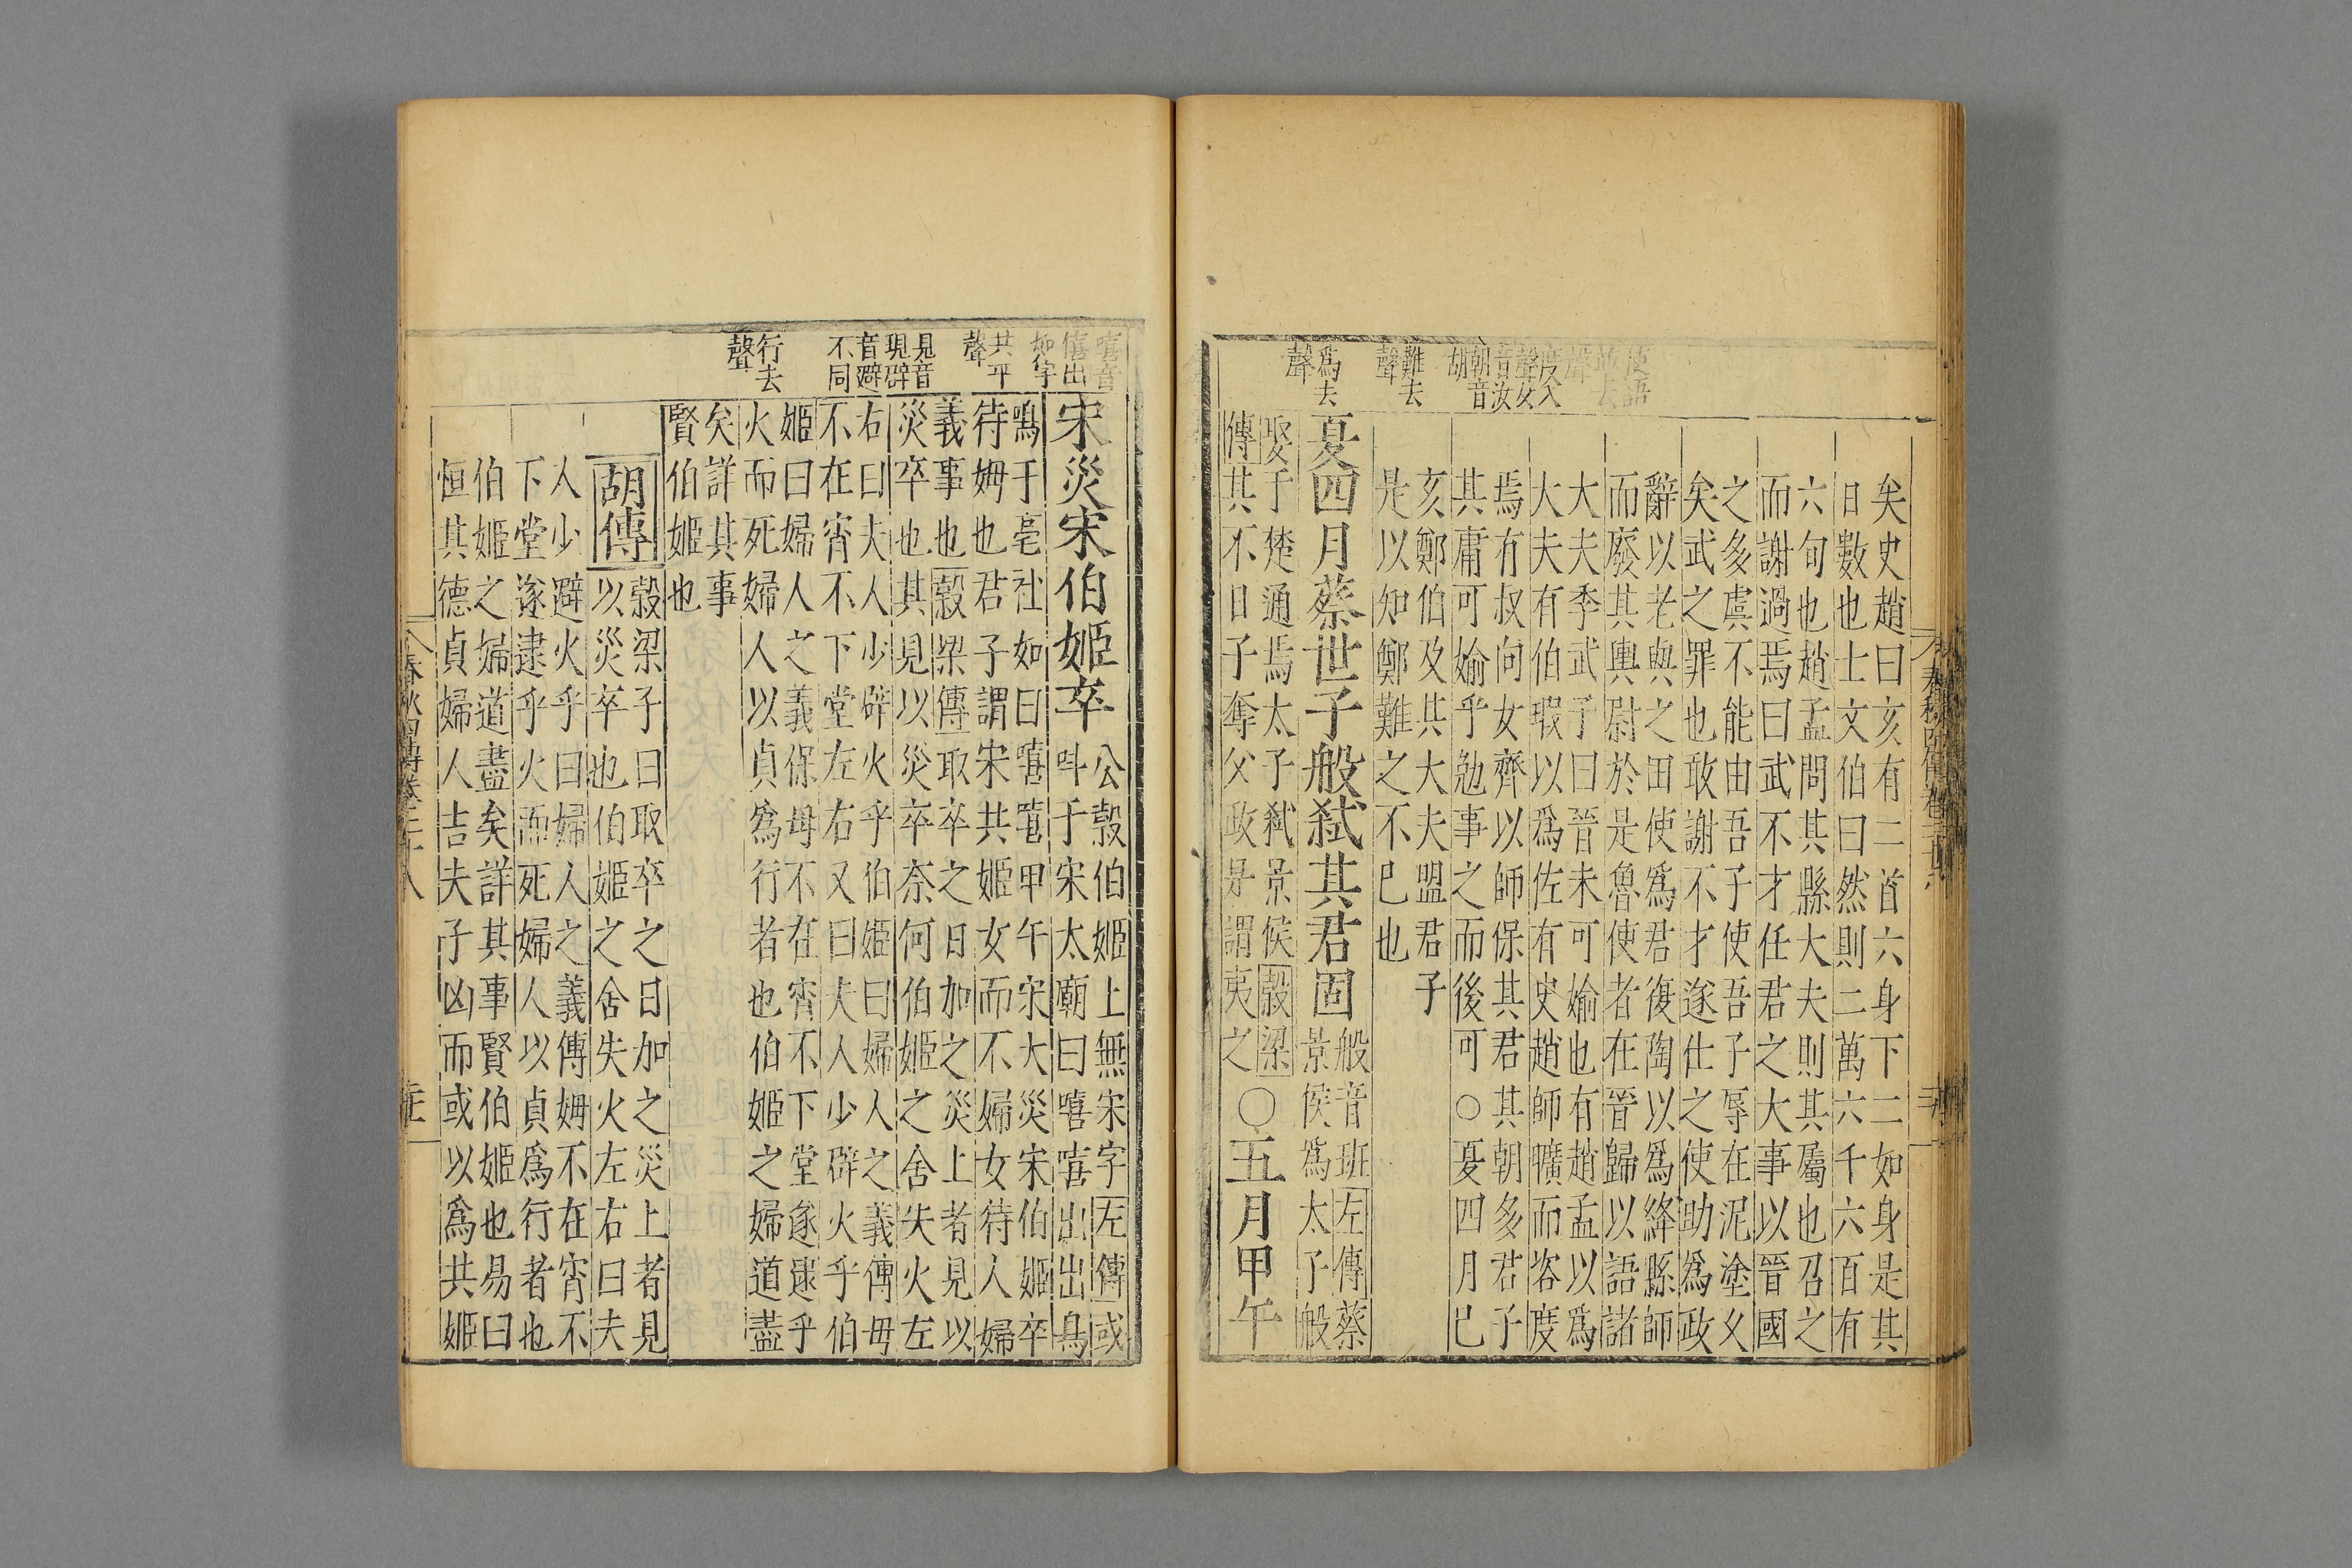 矣史趙曰亥有二首六身下二如身是其
日數也士文伯曰然則二萬六千六百有
六旬也趙孟問其縣大夫則其屬也召之
而謝過焉曰武不才任君之大事以晉國
之多虞不能由吾子使吾子辱在泥塗久
矣武之罪也敢謝不才遂仕之使助為政
辭以老與之田使為君復陶以為絳縣師
而廢其輿尉於是魯使者在晉歸以語諸
大夫季武子曰晉未可媮也有趙孟以為
大夫有伯瑕以為佐有史趙師曠而咨度
焉有叔向女齊以師保其君其朝多君子
其庸可媮乎勉事之而後可○夏四月己
亥鄭伯及其大夫盟君子
是以知鄭難之不已也
夏四月蔡世子般弒其君固
般音班左傳蔡
景侯為太子般
娶于楚通焉太子弒景侯穀梁
傳其不日子奪父政是謂夷之○五月甲午
難去
聲
為去
聲
度入
聲女
音汝
朝音
胡
宋災宋伯姬卒
公穀伯姬上無宋字左傳或
叫于宋太廟曰嘻嘻出出鳥
鳴于亳社如曰嘻嘻甲午宋大災宋伯姬卒
待姆也君子謂宋共姬女而不婦女待人婦
義事也穀梁傳取卒之日加之災上者見以
災卒也其見以災卒奈何伯姬之舍失火左
右曰夫人少辟火乎伯姬曰婦人之義傅母
不在宵不下堂左右又曰夫人少辟火乎伯
姬曰婦人之義保母不在宵不下堂遂逮乎
火而死婦人以貞為行者也伯姬之婦道盡
矣詳其事
賢伯姬也
胡傳
穀梁子曰取卒之日加之災上者見
以災卒也伯姬之舍失火左右曰夫
人少避火乎曰婦人之義傅姆不在宵不
下堂遂逮乎火而死婦人以貞為行者也
伯姬之婦道盡矣詳其事賢伯姬也易曰
恒其德貞婦人吉夫子凶而或以為共姬
嘻音
僖出
如字
共平
聲
見音
現辟
音避
不同
行去
聲
春秋四傳卷二十八